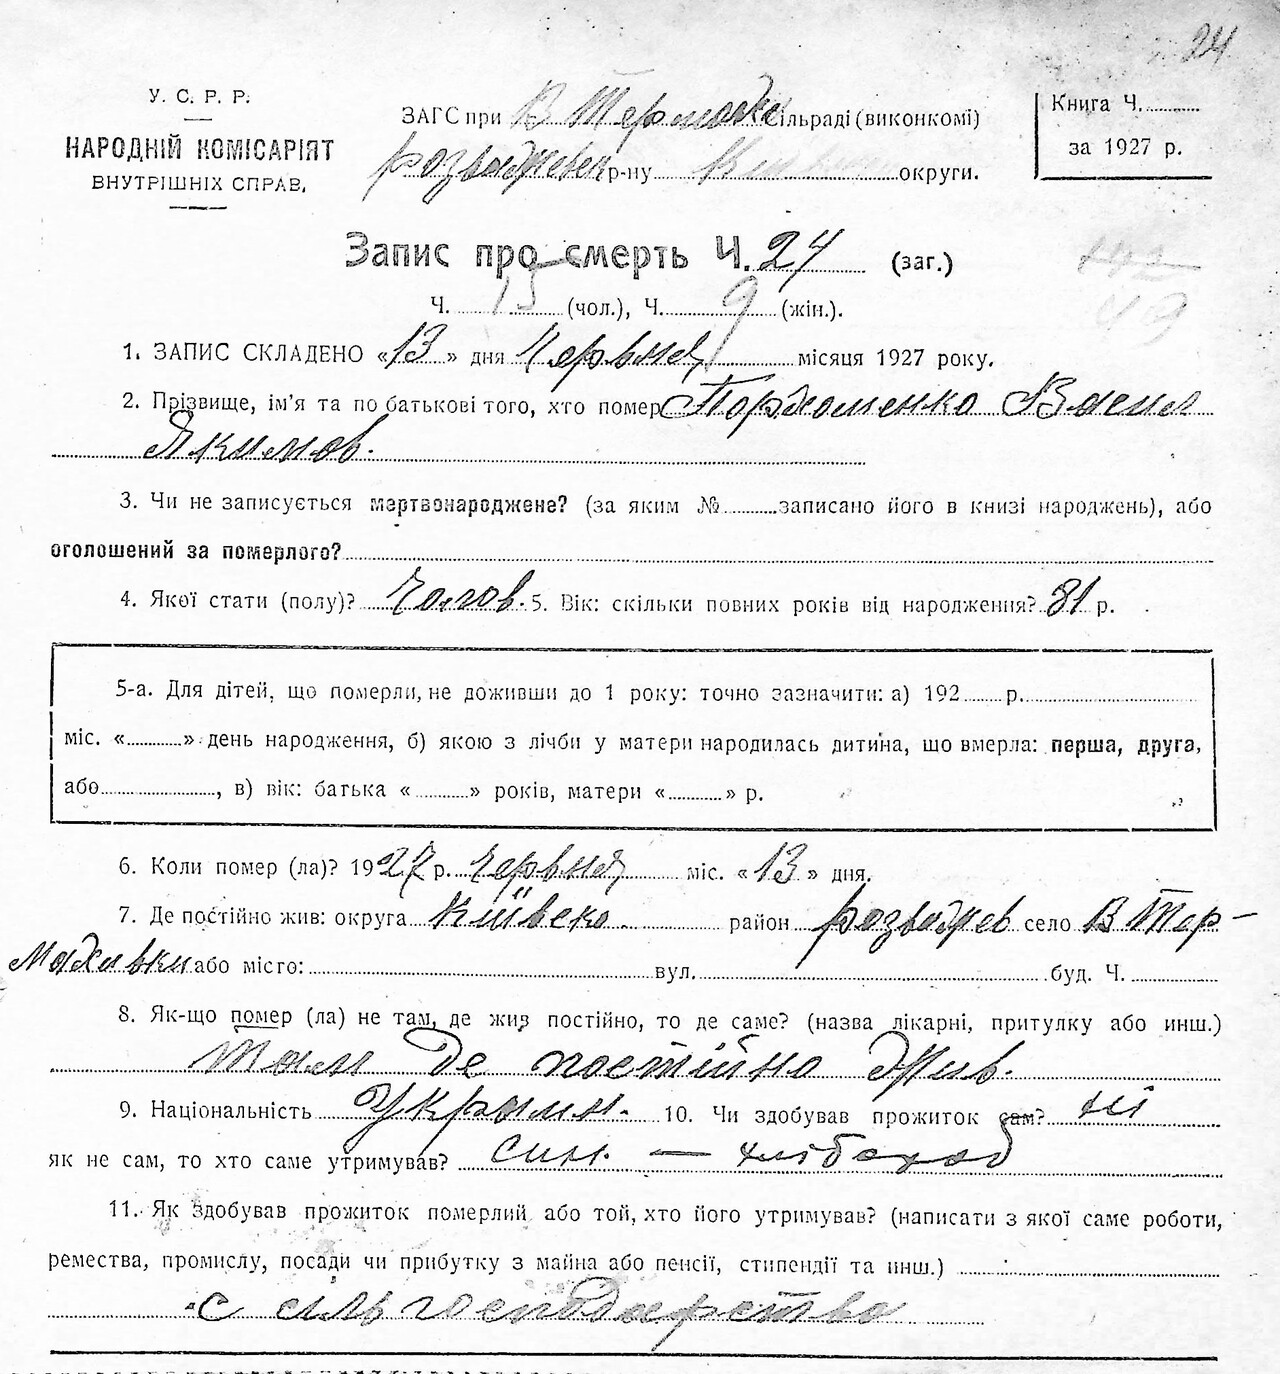 24.
У. С. Р. Р.
НАРОДНІЙ КОМІСАРІЯТ
ВНУТРІШНІХ СПРАВ.
ЗАГС при В Термахівс сільраді (виконкомі)
розважевск р-ну Київск округи.
Книга Ч.
за 1927 р.
Запис про смерть Ч. 24 (заг.)
Ч. 15 (чол.), Ч. 9 (жін.).
142
49
1. ЗАПИС СКЛАДЕНО «13» дня Червня місяця 1927 року.
2. Прізвище, ім'я та по батькові того, хто помер Пархоменко Васил
Якимов.
3. Чи не записується мертвонароджене? (за яким № записано його в книзі народжень), або
оголошений за померлого?
4. Якої стати (полу)? Чолов. 5. Вік: скільки повних років від народження? 81 р.
5-а. Для дітей, що померли, не доживши до 1 року: точно зазначити: а) 192 р.
міс. « » день народження, б) якою з лічби у матери народилась дитина, що вмерла: перша, друга,
або , в) вік: батька « » років, матери « » р.
6. Коли помер (ла)? 1927 р. Червня міс. «13» дня.
7. Де постійно жив: округа Київска район розважев село В Тер-
махивки або місто: вул. буд. Ч.
8. Як-що помер (ла) не там, де жив постійно, то де саме? (назва лікарні, притулку або инш.)
там де постійно жив.
9. Національність Украин. 10. Чи здобував прожиток сам? ні
як не сам, то хто саме утримував? син. — хлібороб
11. Як здобував прожиток померлий або той, хто його утримував? (написати з якої саме роботи,
ремества, промислу, посади чи прибутку з майна або пенсії, стипендії та инш.)
с сильгосподарства